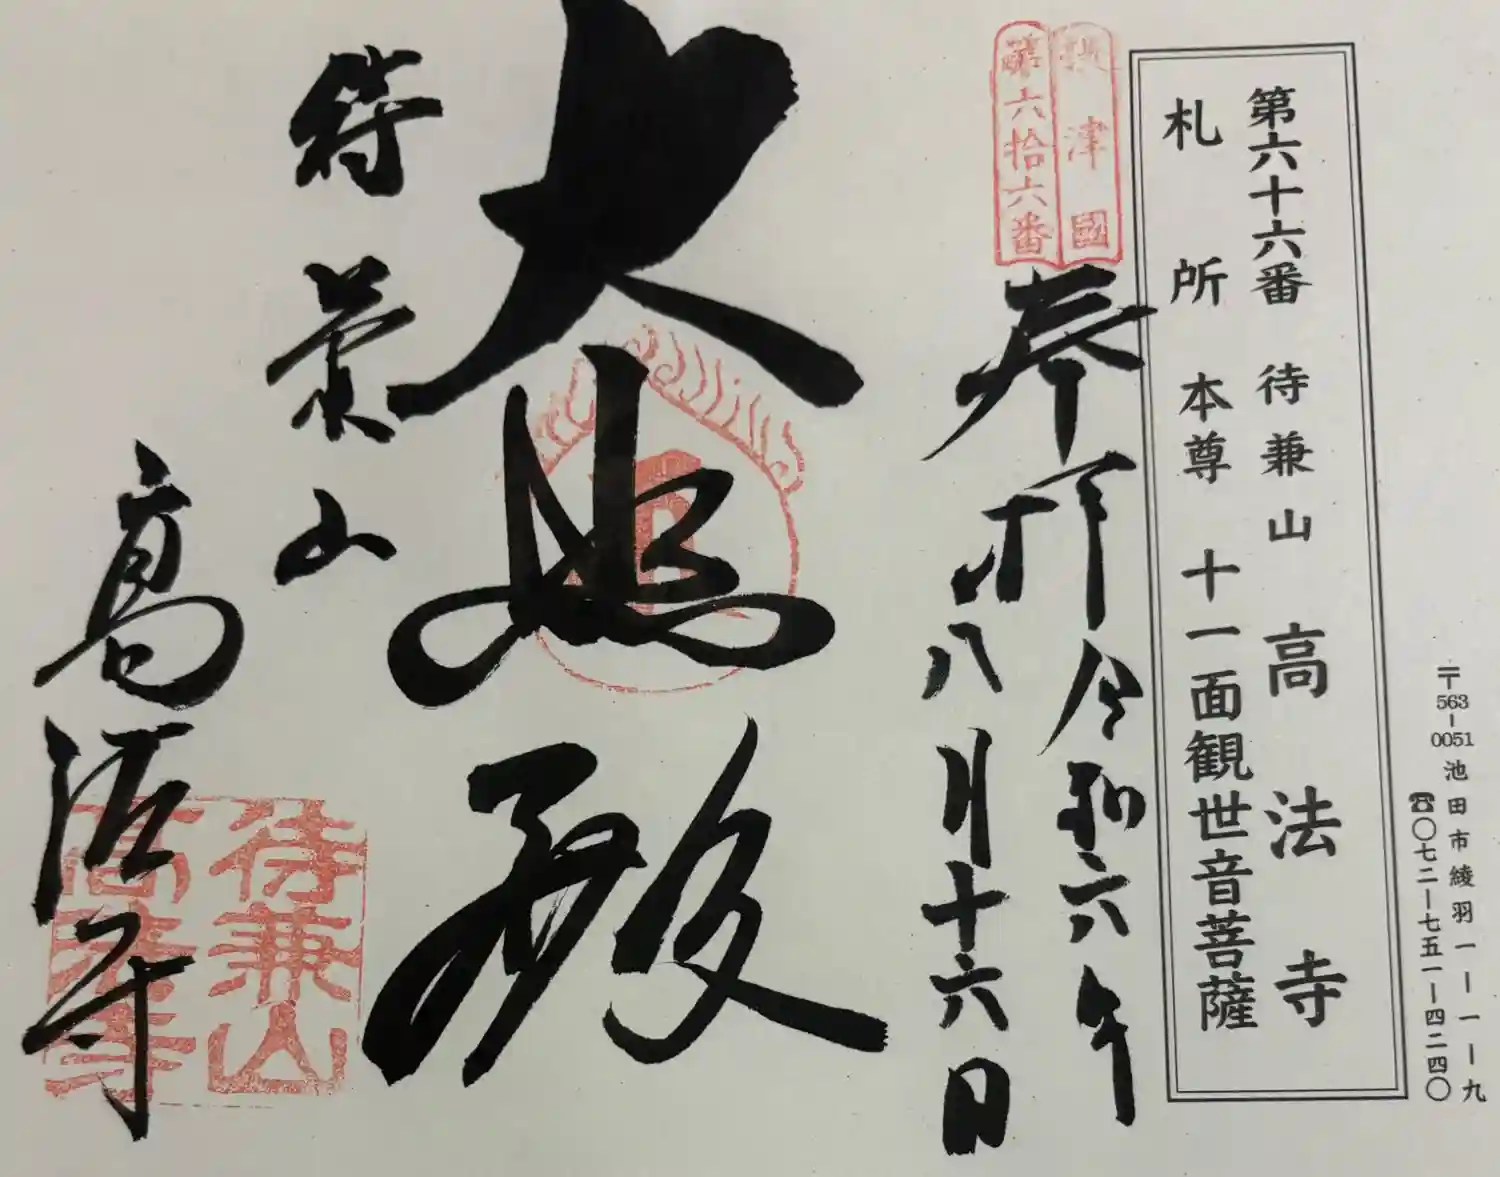 〒563-0051池田市綾羽一ー一一ー九
☎〇七二ー七五一ー四二四〇
第六十六番 待兼山 高法寺
札所 本尊 十一面観世音菩薩
摂津國
第六拾六番
奉拝 令和六年
八月十六日
大悲殿
待兼山
高法寺
待兼山
高法寺